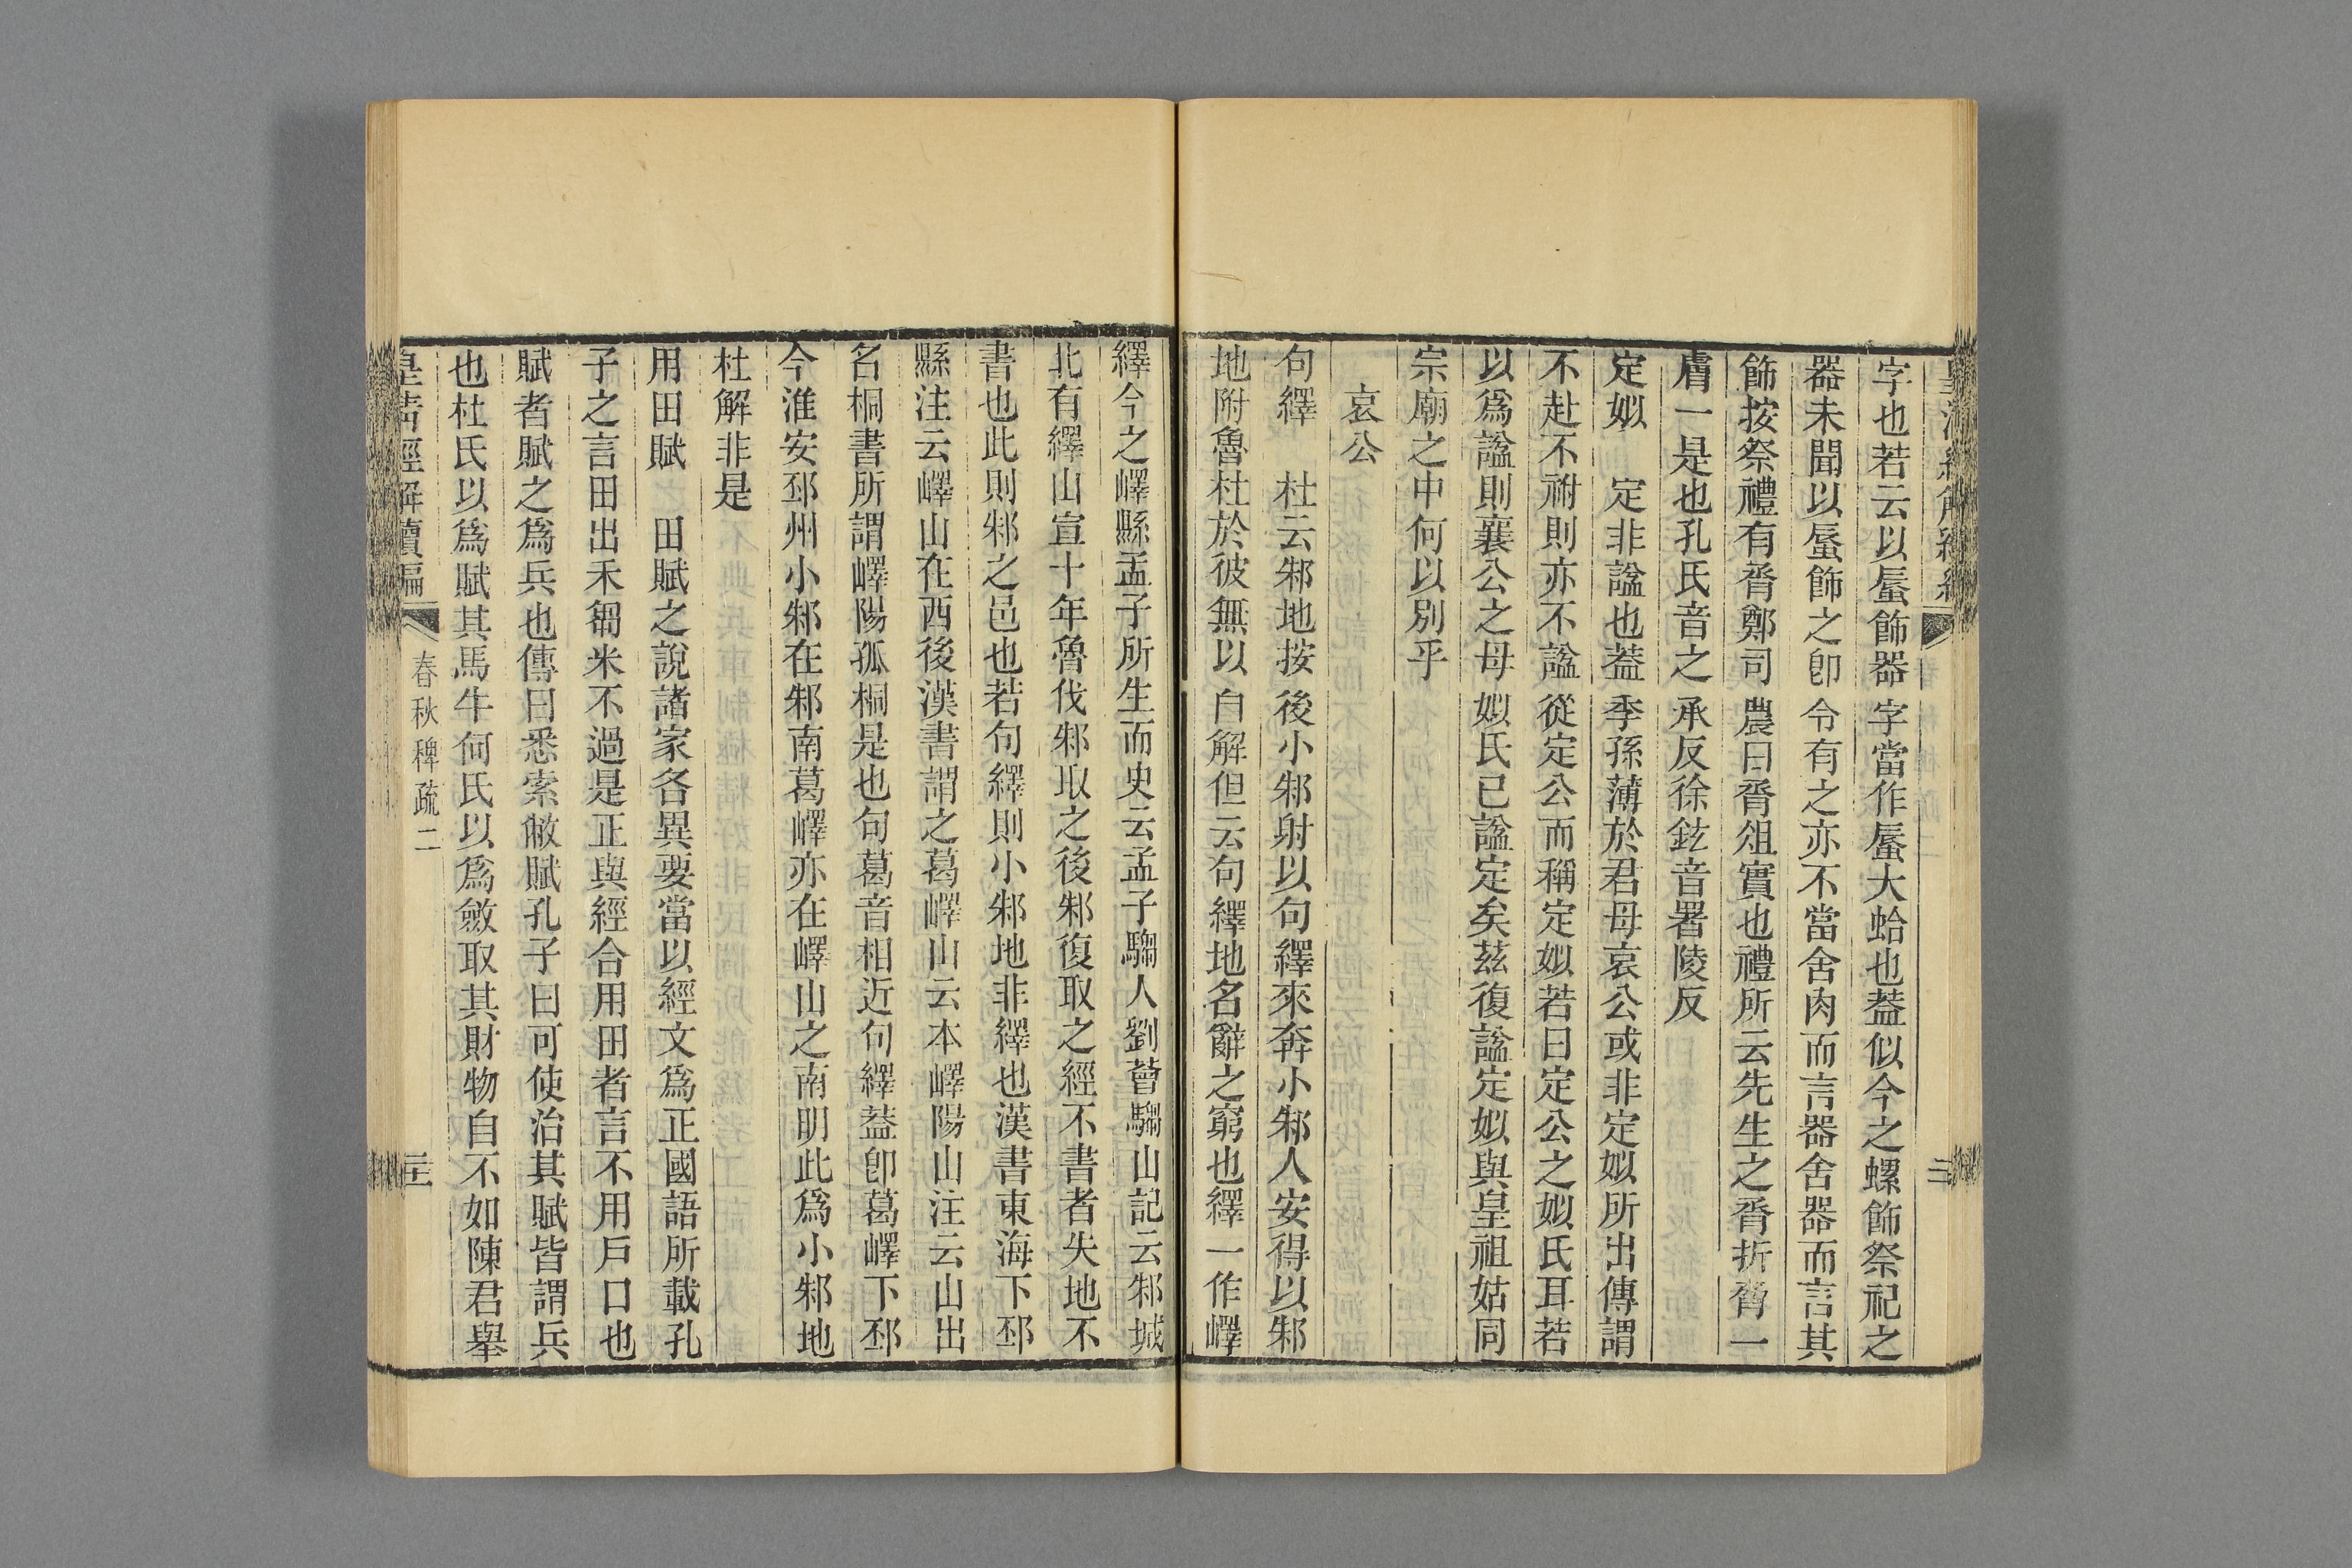 字也若云以蜃飾器字當作蜃大蛤也葢似今之螺飾祭祀之
器未聞以蜃飾之卽令有之亦不當舍肉而言器舍器而言其
飾按祭禮有脀鄭司農曰脀俎實也禮所云先生之脀折脀一
膚一是也孔氏音之承反徐鉉音署陵反
定姒　定非諡也葢季孫薄於君母哀公或非定姒所出傳謂
不赴不祔則亦不諡從定公而稱定姒若曰定公之姒氏耳若
以爲諡則襄公之母姒氏已諡定矣茲復諡定姒與皇祖姑同
宗廟之中何以別乎
哀公
句繹　杜云邾地按後小邾射以句繹來奔小邾人安得以邾
地附魯杜於彼無以自解但云句繹地名辭之窮也繹一作嶧
繹今之嶧縣孟子所生而史云孟子騶人劉薈騶山記云邾城
北有繹山宣十年魯伐邾取之後邾復取之經不書者失地不
書也此則邾之邑也若句繹則小邾地非繹也漢書東海下邳
縣注云嶧山在西後漢書謂之葛嶧山云本嶧陽山注云山出
名桐書所謂嶧陽孤桐是也句葛音相近句繹葢卽葛嶧下邳
今淮安邳州小邾在邾南葛嶧亦在嶧山之南明此爲小邾地
杜解非是
用田賦　田賦之說諸家各異要當以經文爲正國語所載孔
子之言田出禾芻米不過是正與經合用田者言不用戶口也
賦者賦之爲兵也傳曰悉索敝賦孔子曰可使治其賦皆謂兵
也杜氏以爲賦其馬牛何氏以爲斂取其財物自不如陳君舉
皇淸經解續編
春秋稗疏二